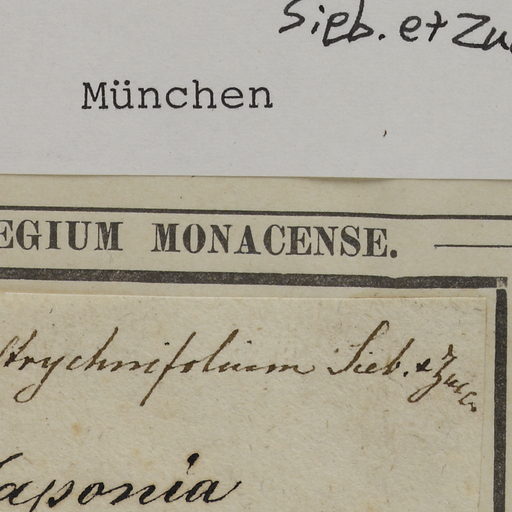 Sieb. et Zu
München
EGIUM MONACENSE.
strychnifolium Sieb. & Zucc.
Japonia